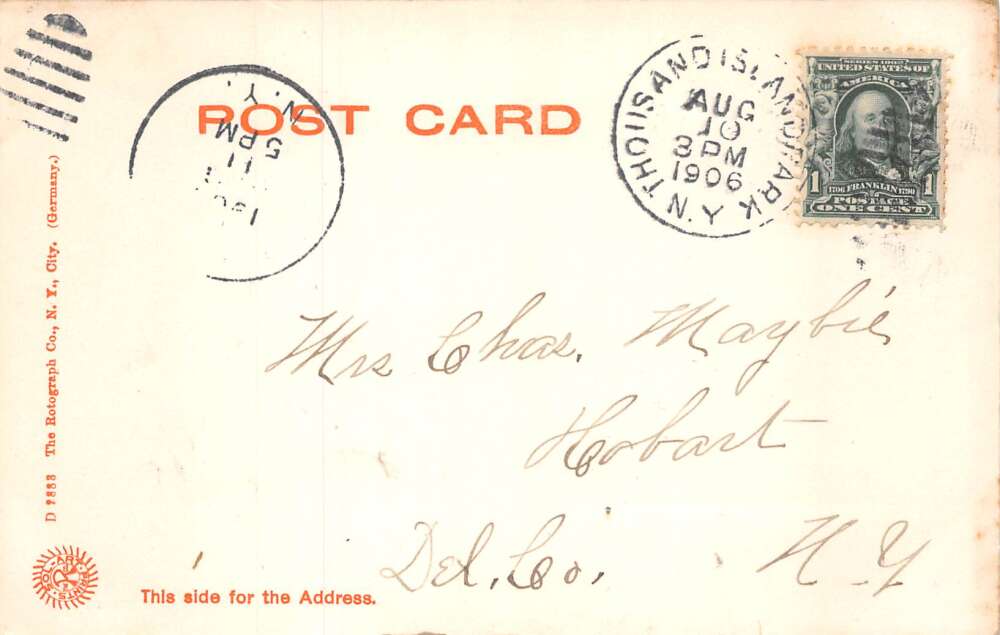 POST CARD
THOUSAND ISLAND PARK N.Y.
AUG
10
3 PM
1906
N.Y.
5 PM
11
SERIES 1902
UNITED STATES OF
AMERICA
1 1706 FRANKLIN 1790 1
POSTAGE
ONE CENT
Mrs Chas. Maybie
Hobart
Del. Co. N.Y
The Rotograph Co., N. Y., City. (Germany.)
SOL-ART PRINTS
This side for the Address.